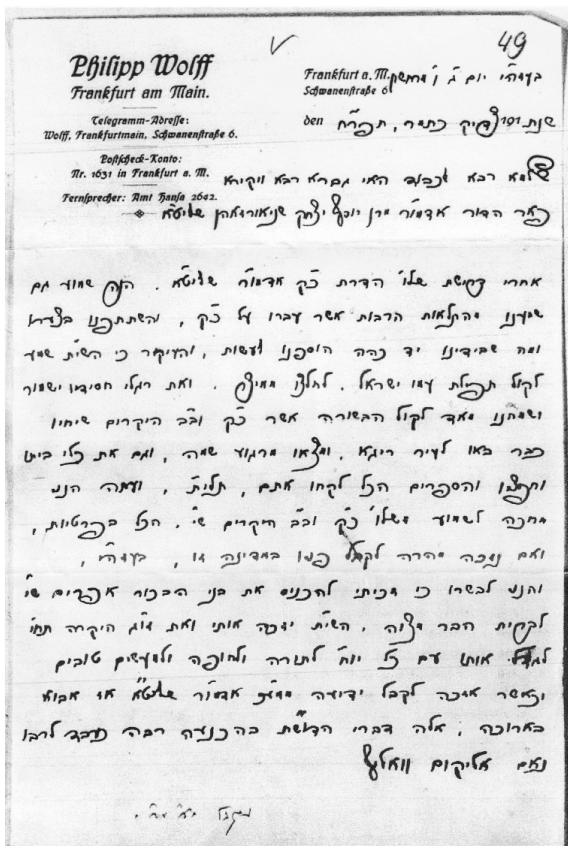 49
Philipp Wolff
Frankfurt am Main.
Telegramm-Adresse:
Wolff, Frankfurtmain, Schwanenstraße 6.
Postscheck-Konto:
Nr. 1631 in Frankfurt a. M.
Fernsprecher: Amt Hansa 2642.
Frankfurt a. M.
Schwanenstraße 6
בעזהי יום ג ו מרחשון
den 191
שנת צדיק כתמר, תרפ״ח
שלמא רבא לכבוד האי גברא רבא ויקירא
פאר הדור אדמו״ר מרן יוסף יצחק שניאורסאהן שליט״א
אחרי דרישת שלו׳ הדרת כ״ק אדמו״ר שליט״א. הנה שמוע גם
שמענו מהתלאות הרבות אשר עברו על כ״ק, והשתתפנו בצערו
ומה שבידינו יד כהה הוספנו לעשות, והעיקר כי השי״ת שמע
לקול תפילת עמו ישראל, לחלצו ממיצר. ואת רגלי חסידיו ישמור
ושמחנו מאד לקול הבשורה אשר כ״ק וב״ב היקרים שיחיו
כבר באו לעיר ריגא, ומצאו מרגוע שמה, וגם את כלי ביתו
וחפציו והספרים הכל לקחו אתם, תלי״ת, ועתה הננו
מחכה לשמוע משלו׳ כ״ק וב״ב היקרים שי׳, הכל בפרטיות,
ואם נזכה מהרה לקבל פניו במדינה זו, בעזהי,
והננו לבשרו כי זכיתי להכניס את בני הבכור אפרים שי׳
לבקיות הבר מצוה, השי״ת יזכה אותי ואת זוג׳ היקרה תחי׳
לגדל אותו עם כל יוח׳ לתורה ולחופה ולמעשים טובים
וכאשר אזכה לקבל ידיעה מאת אדמו״ר שליט״א אז אבוא
בארוכה, אלה דברי הדושת בהכנעה רבה כעבד לרבו
נאם אליקום וואלף